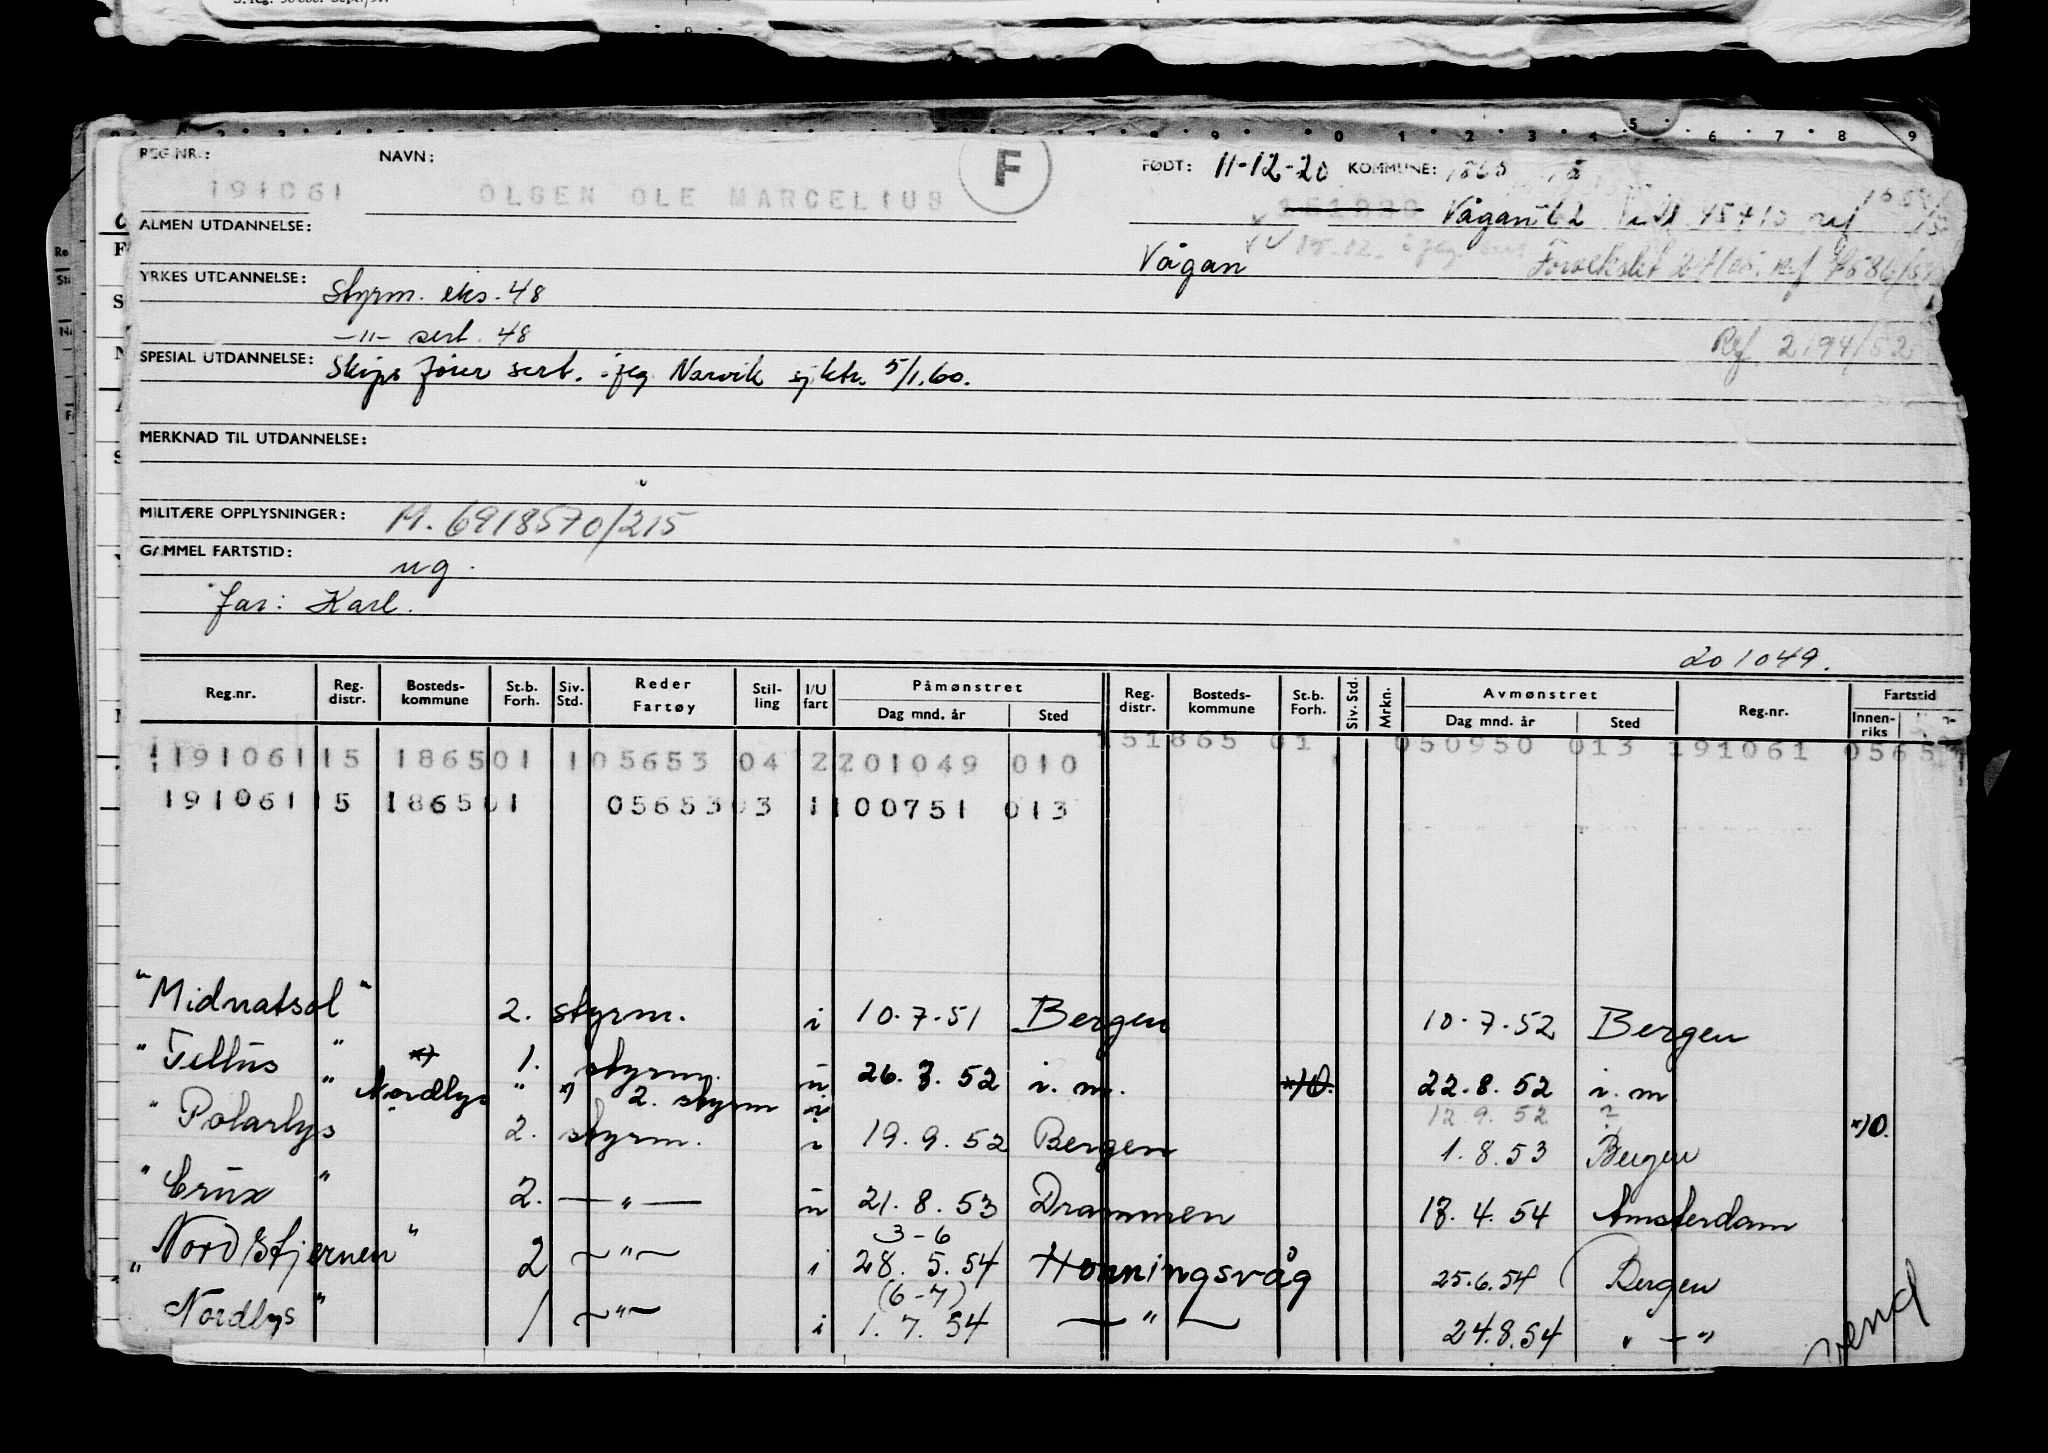 REG NR.: NAVN: F FØDT: 11-12-20 KOMMUNE: 1865
191061 OLSEN OLE MARCELIUS
Vågan
ALMEN UTDANNELSE:
Vågan
YRKES UTDANNELSE: Styrm. eks. 48
—"— sert. 48
Ref. 2194/52
SPESIAL UTDANNELSE: Skips fører sert. i flg. Narvik sj.ktr. 5/1.60.
MERKNAD TIL UTDANNELSE:
MILITÆRE OPPLYSNINGER: M. 6918570/215
GAMMEL FARTSTID: ug.
far: Karl.
201049.
Reg.nr. Reg. distr. Bosteds- kommune St.b. Forh. Siv. Std. Reder Fartøy Stil- ling I/U fart Påmønstret Dag mnd. år Sted Reg. distr. Bosteds- kommune St.b. Forh. Siv. Std. Mrkn. Avmønstret Dag mnd. år Sted Reg.nr. Fartstid Innen- riks
191061 15 186501 105653 04 2 201049 010 151865 01 050950 013 191061 0565
191061 15 186501 05653 03 1 100751 013
"Midnatsol" 2. styrm. i 10.7.51 Bergen 10.7.52 Bergen
"Tellus" *) 1. styrm. u 26.7.52 i.m. *)0. 22.8.52 i.m
" Nordlys " *) 2. styrm i 12.9.52 ?
"Polarlys 2. styrm. i 19.9.52 Bergen 1.8.53 Bergen *)0.
"Crux" 2. —"— u 21.8.53 Drammen 18.4.54 Amsterdam
3-6
"Nordstjernen" 2 —"— i 28.5.54 Honningsvåg 25.6.54 Bergen
(6-7)
"Nordlys" 1 —"— i 1.7.54 —"— 24.8.54 " —"
vend